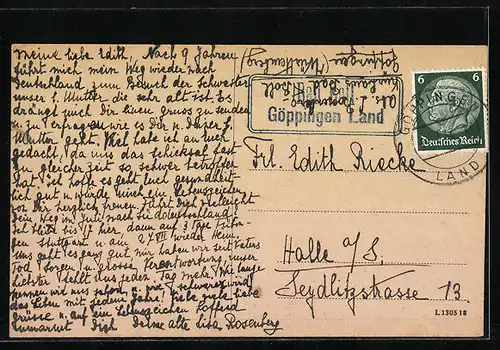 Meine liebe Edith, Nach 9 Jahren
führt mich mein Weg wieder nach
Deutschland zum Besuch der Schwester
unser l. Mutter die sehr alt ist. Es
drängt auch Dir einen Gruss zu senden
u. zu erfragen wie es Dir u. Deiner l.
Mutter geht. Viel habe ich an euch
gedacht, da uns das Schicksal fast
zu gleicher Zeit so schwer getroffen
hat. Ich hoffe es geht euch gesundheitlich
gut u. würde mich ein Lebenszeichen
von Dir herzlich freuen. Führt Dich vielleicht
Dein Weg im Juli nach
Ich bleibe bis 17 hier, dann auf 3 Tage
Stuttgart u. am 27 VII wieder
uns geht es ganz gut nur haben wir seit Vaters
Tod Sorgen u. grosse Verantwortung, unser
liebster fehlt uns jeden Tag mehr. Wie lange
kennen wir uns schon u. wie schwarz wird
das Leben mit jedem Jahr! Viele liebe
Grüsse u. auf ein Lebenszeichen hoffend
umarmt Dich Deine alte Lisa Rosenberg
Göppingen (Württemberg)
Göppingen Land
6 6
Deutsches Reich
GÖPPINGEN
LAND
Frl. Edith Riecke
Halle a/S.
Seydlitzstrasse 13
L 1305 18